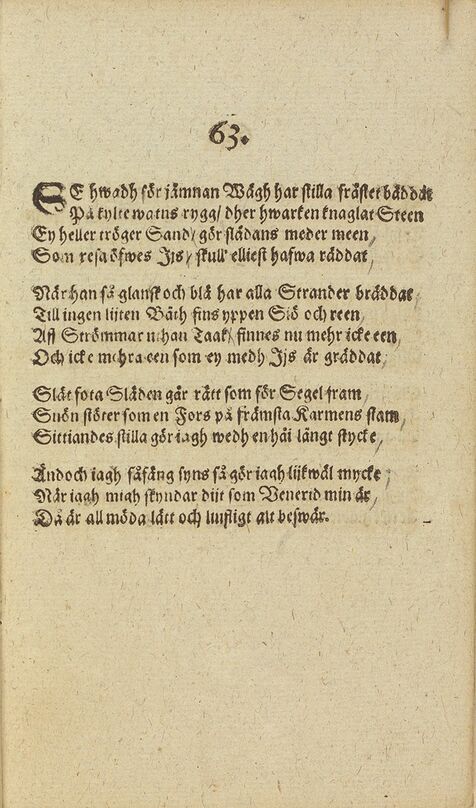 63.
SE hwadh för jämnan Wägh har stilla frästet bäddat
På kylte watns rygg/ dher hwarken knaglat Steen
Ey heller tröger Sand/ gör slädans meder meen/
Som resa öfwes Ijs/ skull elliest hafwa räddat/
När han så glansk och blå har alla Strander bräddat/
Till ingen lijten Båth fins yppen Siö och reen/
Aff Strömmar uthan Taak/ finnes nu mehr icke een/
Och icke mehra een som ey medh Ijs är gräddat/
Slät fota Släden går rätt som för Segel fram/
Snön stöter som en Fors på främsta Karmens stam/
Sittiandes stilla gör iagh wedh en häi långt stycke/
Ändoch iagh fåfäng syns så gör iagh lijkwäl mycke/
När iagh migh skyndar dijt som Venerid min är/
Då är all möda lätt och lustigt alt beswär.